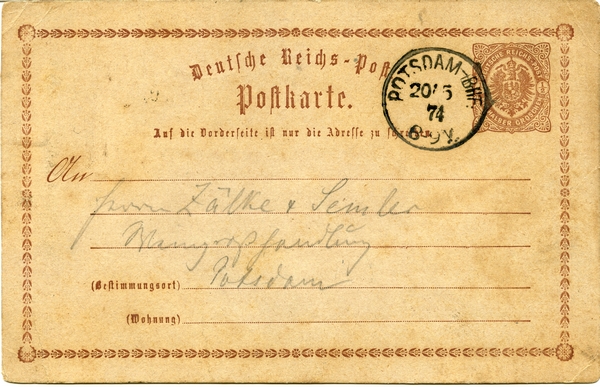 Deutsche Reichs-Post
Postkarte.
POTSDAM-BHF.
20/5
74
6-9V.
DEUTSCHE REICHS-POST
EIN HALBER GROSCHEN
Auf die Vorderseite ist nur die Adresse zu
An
Herrn Zälke & Semler
Weingroßhandlung
(Bestimmungsort) Potsdam
(Wohnung)